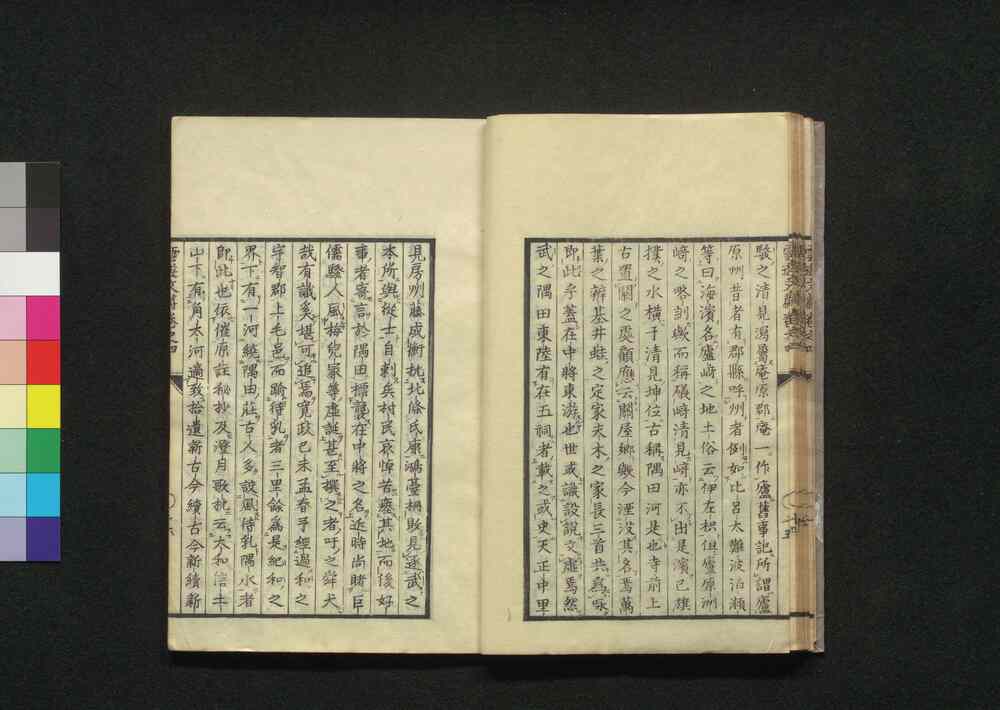 駿之清見瀉屬庵原郡庵一作廬舊事記所謂廬
原州昔者有郡縣呼州者例如比呂太難波泊瀬
等曰海濱名廬﨑之地土俗云伊左根但廬原洲
﨑之略剞劂而稱礒﨑清見﨑亦不出是濱已雄
撲之水橫于清見坤位古稱隅田河是也寺前上
古置關之處顧應云關屋鄉歟今湮沒其名焉萬
葉之辨基井蛙之定家夫木之家長三首共爲咏
即此乎蓋在中將東遊也世或識設說文虛焉然
武之隅田東陸有在五祠者載之或史天正中里
見房州藤成衡執北條氏康鴻臺柵敗見逐武之
本所與從士自刺兵村民哀悼苦瘞其地而後好
事者寄言於隅田標襲在中將之名近時尚睹巨
儒騷人風梅兒冢等虛誕甚至撰之者吁之舜犬
哉有識奚堪可追焉寬政己未孟春予經過和之
宇智郡上毛邑而踰待乳者三里餘爲是紀和之
界下有一河繞隅田莊古人多設風待乳隅水者
即此也依催原註秘抄及澄月歌枕云太和信土
山下有角太河適致拾遺新古今續古今新續新